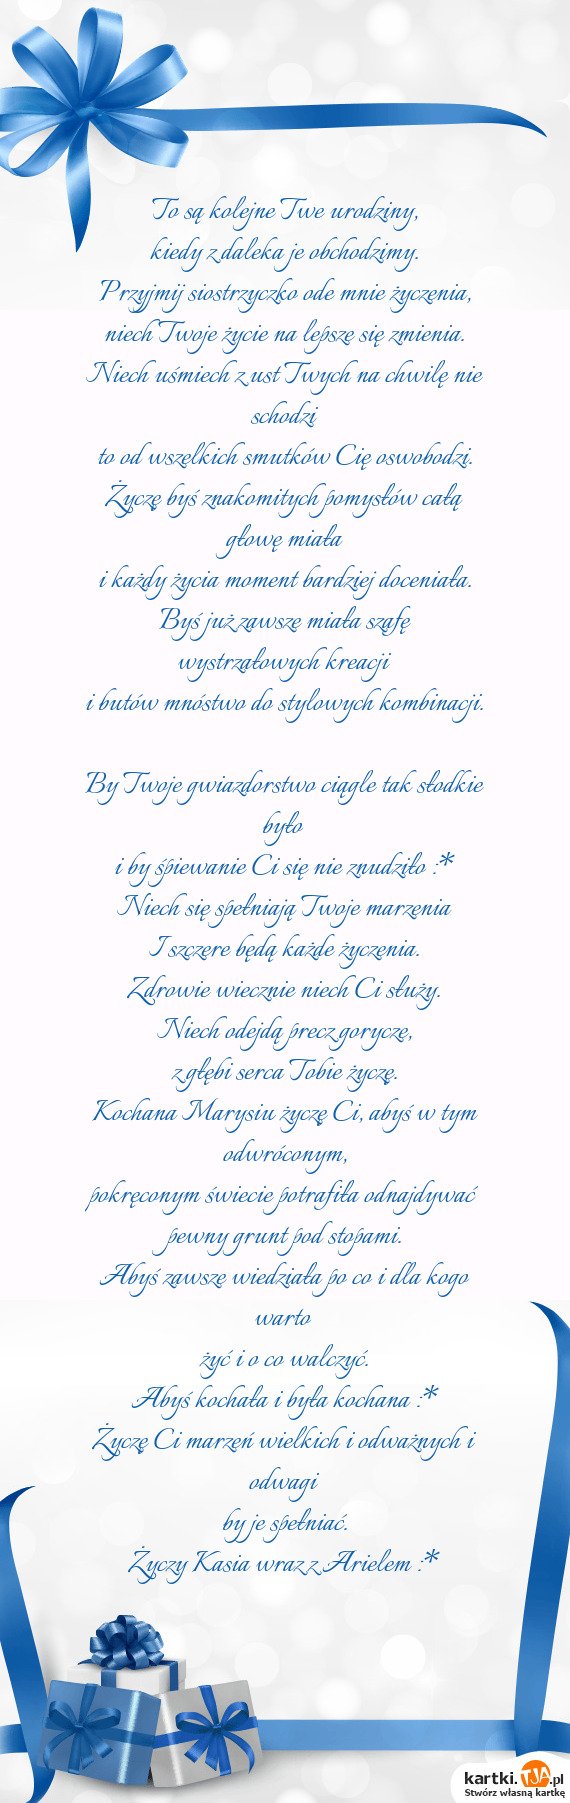 To są kolejne Twe urodziny,
kiedy z daleka je obchodzimy.
Przyjmij siostrzyczko ode mnie życzenia,
niech Twoje życie na lepsze się zmienia.
Niech uśmiech z ust Twych na chwilę nie
schodzi
to od wszelkich smutków Cię oswobodzi.
Życzę byś znakomitych pomysłów całą
głowę miała
i każdy życia moment bardziej doceniała.
Byś już zawsze miała szafę
wystrzałowych kreacji
i butów mnóstwo do stylowych kombinacji.
By Twoje gwiazdorstwo ciągle tak słodkie
było
i by śpiewanie Ci się nie znudziło :*
Niech się spełniają Twoje marzenia
I szczere będą każde życzenia.
Zdrowie wiecznie niech Ci służy.
Niech odejdą precz gorycze,
z głębi serca Tobie życzę.
Kochana Marysiu życzę Ci, abyś w tym
odwróconym,
pokręconym świecie potrafiła odnajdywać
pewny grunt pod stopami.
Abyś zawsze wiedziała po co i dla kogo
warto
żyć i o co walczyć.
Abyś kochała i była kochana :*
Życzę Ci marzeń wielkich i odważnych i
odwagi
by je spełniać.
Życzy Kasia wraz z Arielem :*
kartki.TJA.pl
Stwórz własną kartkę